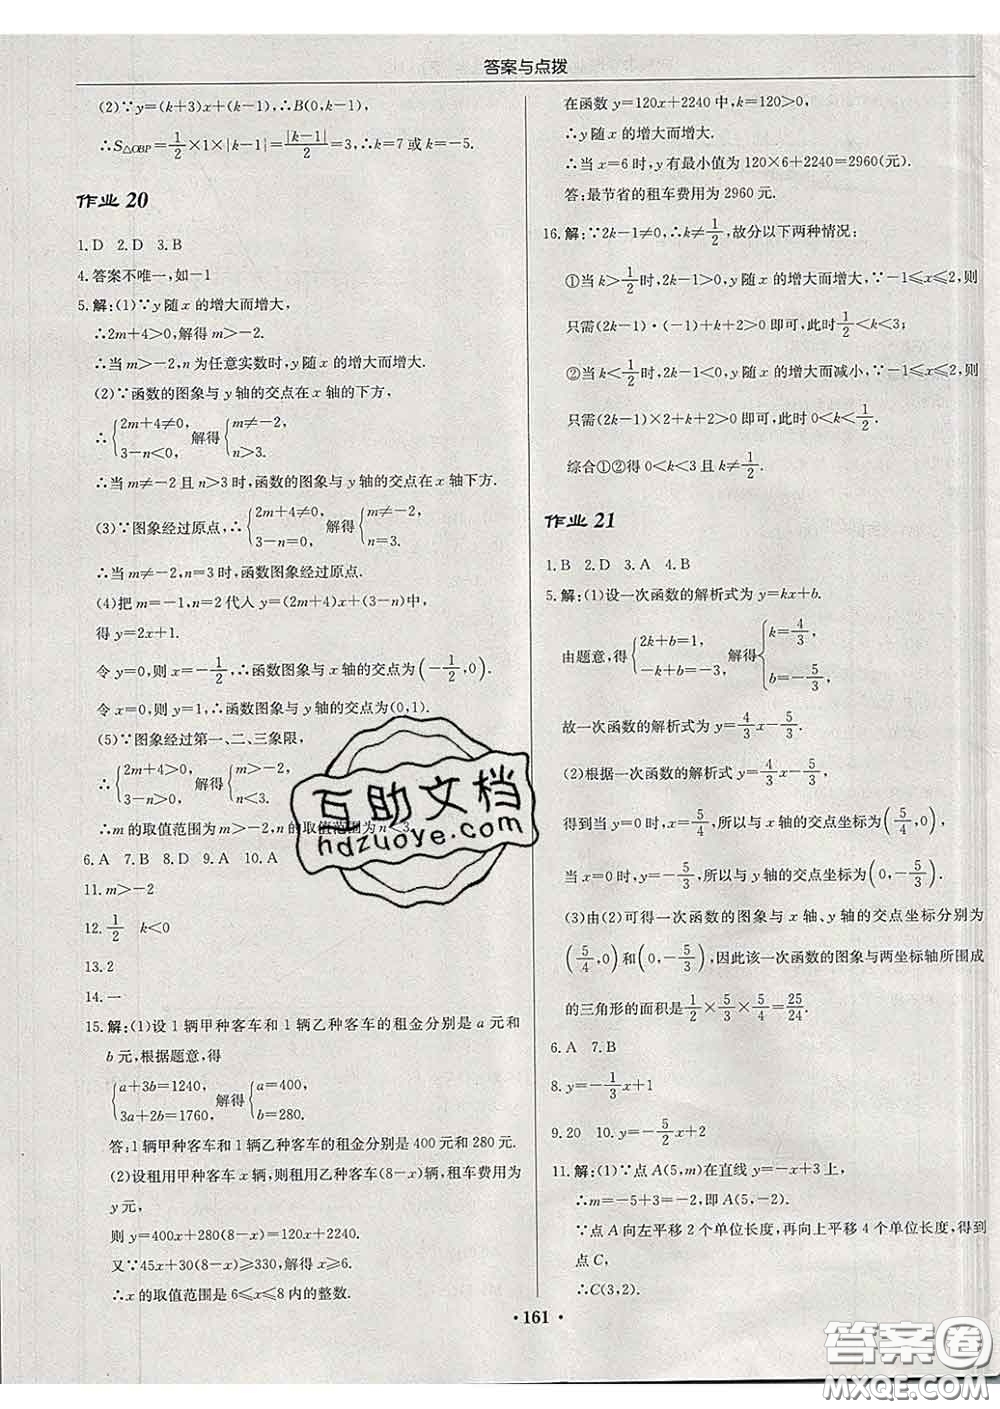 答案与点拨
(2)∵y=(k+3)x+(k-1),∴B(0,k-1),
∴S△OBP=1/2×1×|k-1|=|k-1|/2=3,∴k=7 或 k=-5.
作业 20
1.D 2.D 3.B
4.答案不唯一,如-1
5.解:(1)∵y 随 x 的增大而增大,
∴2m+4>0,解得 m>-2.
∴当 m>-2,n 为任意实数时,y 随 x 的增大而增大.
(2)∵函数的图象与 y 轴的交点在 x 轴的下方,
∴{2m+4≠0, 3-n<0, 解得{m≠-2, n>3.
∴当 m≠-2且 n>3 时,函数的图象与 y 轴的交点在 x 轴下方.
(3)∵图象经过原点,∴{2m+4≠0, 3-n=0, 解得{m≠-2, n=3.
∴当 m≠-2,n=3 时,函数图象经过原点.
(4)把 m=-1,n=2 代入 y=(2m+4)x+(3-n)中,
得 y=2x+1.
令 y=0,则 x=-1/2,∴函数图象与 x 轴的交点为(-1/2,0).
令 x=0,则 y=1,∴函数图象与 y 轴的交点为(0,1).
(5)∵图象经过第一、二、三象限,
∴{2m+4>0, 3-n>0, 解得{m>-2, n<3.
∴m 的取值范围为 m>-2,n 的取值范围为 n<3.
6.A 7.B 8.D 9.A 10.A
11.m>-2
12.1/2 k<0
13.2
14.一
15.解:(1)设 1 辆甲种客车和 1 辆乙种客车的租金分别是 a 元和
b 元,根据题意,得
{a+3b=1240, 3a+2b=1760, 解得{a=400, b=280.
答:1 辆甲种客车和 1 辆乙种客车的租金分别是 400 元和 280 元.
(2)设租用甲种客车 x 辆,则租用乙种客车(8-x)辆,租车费用为
y 元,
则 y=400x+280(8-x)=120x+2240.
又∵45x+30(8-x)≥330,解得 x≥6.
∴x 的取值范围是 6≤x≤8 内的整数.
在函数 y=120x+2240 中,k=120>0,
∴y 随 x 的增大而增大.
∴当 x=6 时,y 有最小值为 120×6+2240=2960(元).
答:最节省的租车费用为 2960 元.
16.解:∵2k-1≠0,∴k≠1/2,故分以下两种情况:
①当 k>1/2时,2k-1>0,y 随 x 的增大而增大,∵-1≤x≤2,则
只需(2k-1)·(-1)+k+2>0 即可,此时1/2<k<3;
②当 k<1/2时,2k-1<0,y 随 x 的增大而减小,∵-1≤x≤2,则
只需(2k-1)×2+k+2>0 即可,此时 0<k<1/2.
综合①②得 0<k<3 且 k≠1/2.
作业 21
1.B 2.D 3.A 4.B
5.解:(1)设一次函数的解析式为 y=kx+b.
由题意,得{2k+b=1, -k+b=-3, 解得{k=4/3, b=-5/3,
故一次函数的解析式为 y=4/3x-5/3.
(2)根据一次函数的解析式 y=4/3x-5/3,
得到当 y=0 时,x=5/4,所以与 x 轴的交点坐标为(5/4,0),
当 x=0 时,y=-5/3,所以与 y 轴的交点坐标为(0,-5/3).
(3)由(2)可得一次函数的图象与 x 轴、y 轴的交点坐标分别为
(5/4,0)和(0,-5/3),因此该一次函数的图象与两坐标轴所围成
的三角形的面积是1/2×5/3×5/4=25/24.
6.A 7.B
8.y=-1/3x+1
9.20 10.y=-5/2x+2
11.解:(1)∵点 A(5,m)在直线 y=-x+3 上,
∴m=-5+3=-2,即 A(5,-2).
∵点 A 向左平移 2 个单位长度,再向上平移 4 个单位长度,得到
点 C,
∴C(3,2).
· 161 ·
互助文档
hdzuoye.com
答案圈
MXQE.COM